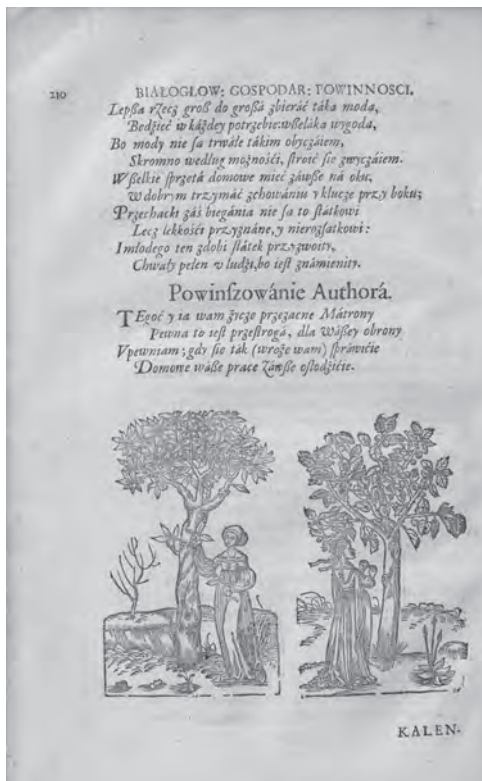 210 BIAŁOGŁOW: GOSPODAR: POWINNOSCI.
Lepßa rzecz groß do großá zbieráć táka moda,
Będźieć w káżdey potrzebie: wßeláka wygoda,
Bo mody nie są trwáłe tákim obyczáiem,
Skromno według możnośći, stroić się zwyczáiem.
Wßelkie sprzętá domowe mieć záwße ná oku,
W dobrym trzymáć zchowániu y klucze przy boku;
Przechacki záś biegánia nie są to státkowi
Lecz lekkośći przyznáne, y nierozsatkowi:
I młodego ten zdobi státek przyzwoity,
Chwały pełen v ludźi, bo iest známienity.
Powinszowánie Authorá.
TEgoć y ia wam życzę przezacne Mátrony
Pewna to iest przestrogá, dla wáßey obrony
Vpewniam; gdy się ták (wrożę wam) spráwićie
Domowe wáße prace záwße osłodźićie.
KALEN-